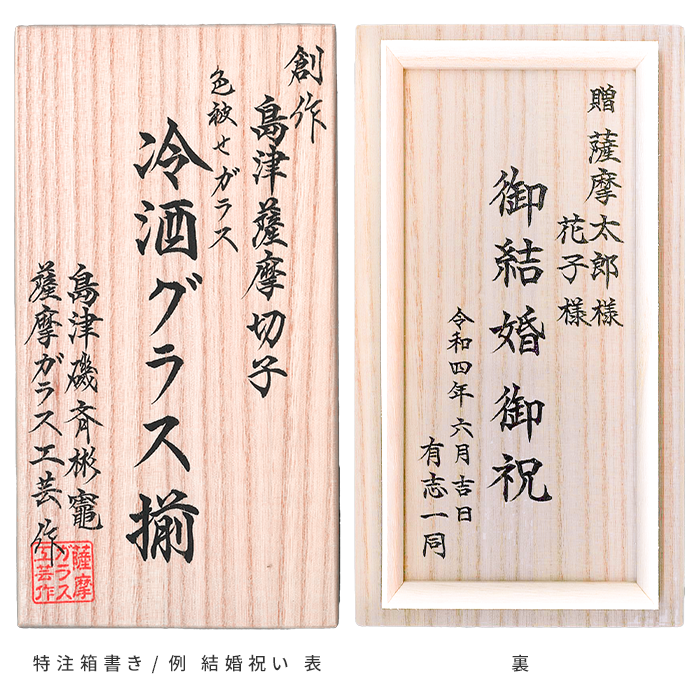 創作
島津薩摩切子
色被せガラス
冷酒グラス揃
島津磯斉彬竈
薩摩ガラス工芸作
薩摩
ガラス
工芸作
贈 薩摩太郎様
花子様
御結婚御祝
令和四年 六月吉日
有志一同
特注箱書き / 例 結婚祝い 表
裏